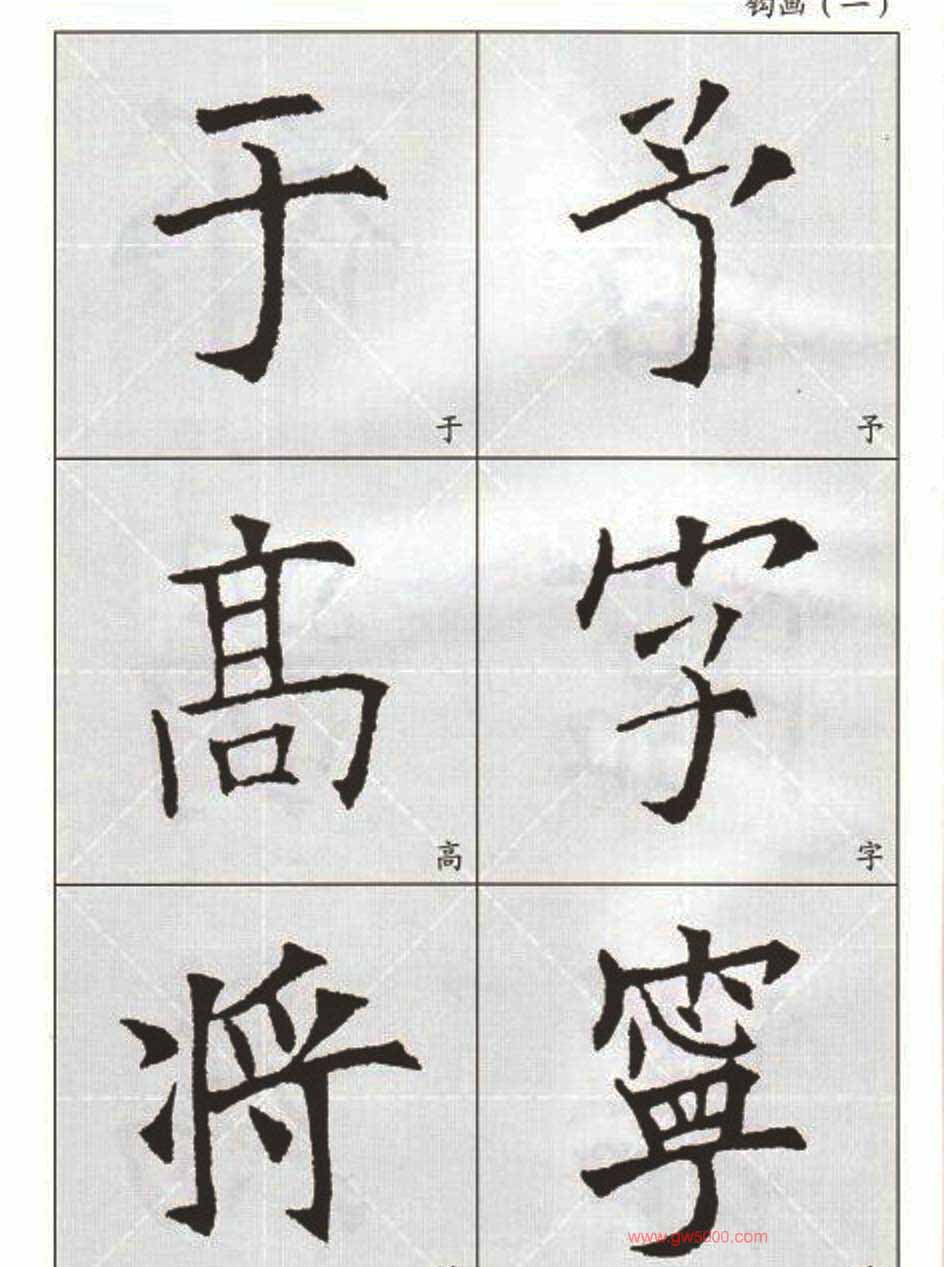 钩画（一）
于 予
于 予
髙 字
高 字
将 寧
www.gw5000.com